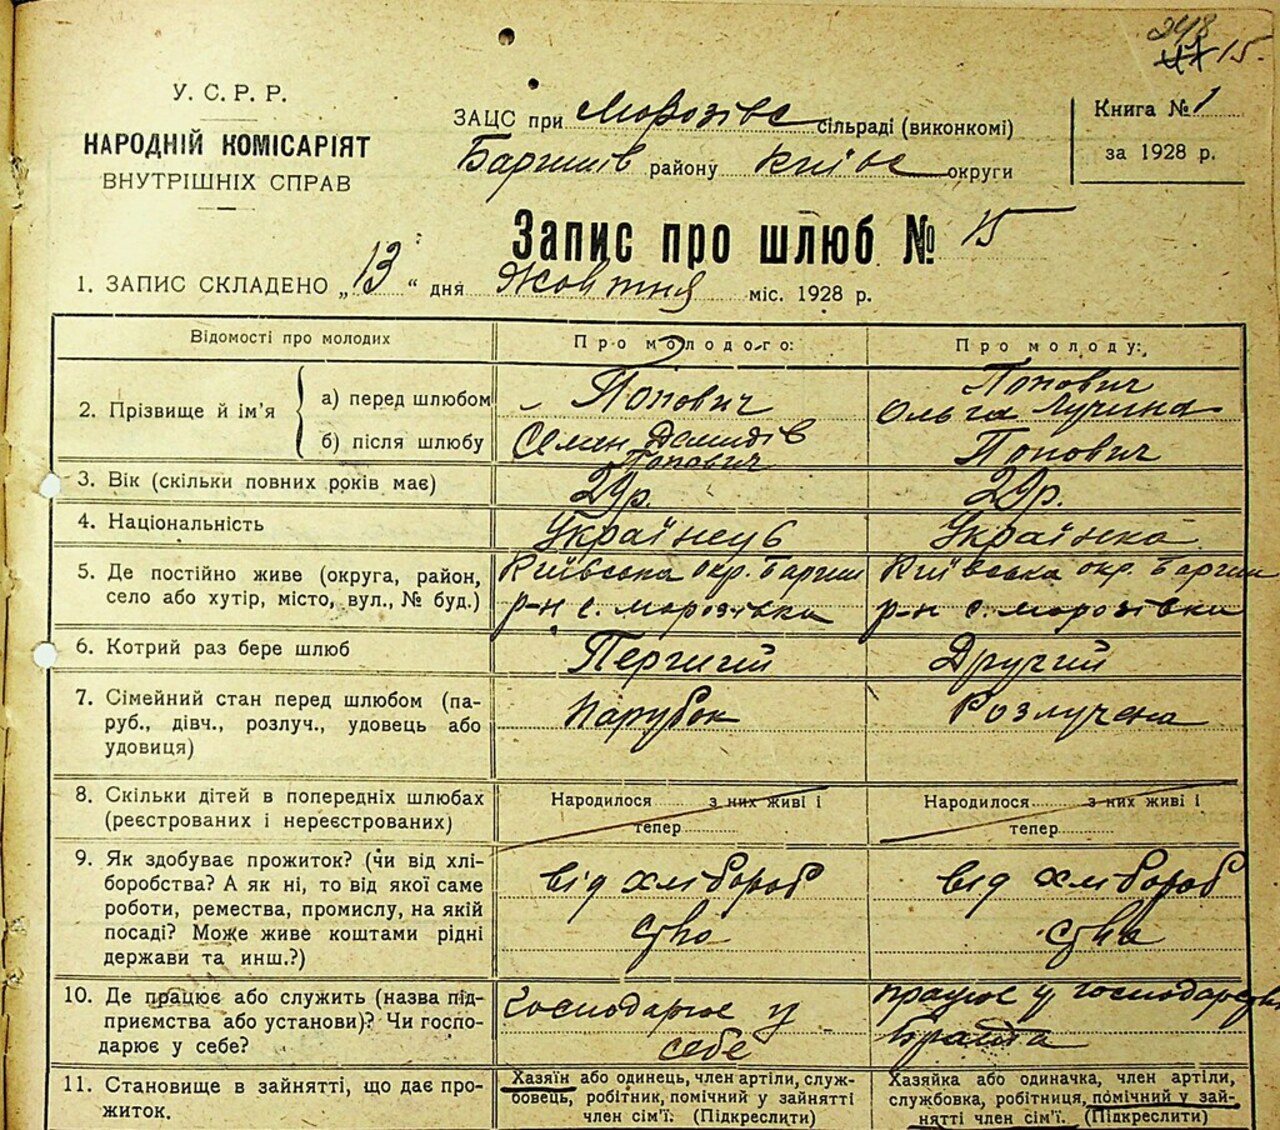 248
41 15.
У. С. Р. Р.
НАРОДНІЙ КОМІСАРІЯТ
ВНУТРІШНІХ СПРАВ
ЗАЦС при Морозівс сільраді (виконкомі)
Баришів району Київс округи
Книга № 1
за 1928 р.
Запис про шлюб № 15
1. ЗАПИС СКЛАДЕНО „13“ дня Жовтня міс. 1928 р.
Відомості про молодих
Про молодого:
Про молоду:
2. Прізвище й ім'я
а) перед шлюбом
б) після шлюбу
Попович
Семен Демидів
Попович
Попович
Ольга Лучина
Попович
3. Вік (скільки повних років має)
29р.
29р.
4. Національність
Українець
Українка
5. Де постійно живе (округа, район,
село або хутір, місто, вул., № буд.)
Київська окр. Бариш
р-н с. Морозівка
Київська окр. Бариш
р-н с. Морозівка
6. Котрий раз бере шлюб
Перший
Другий
7. Сімейний стан перед шлюбом (па-
руб., дівч., розлуч., удовець або
удовиця)
Парубок
Розлучена
8. Скільки дітей в попередніх шлюбах
(реєстрованих і нереєстрованих)
Народилося з них живі і
тепер
Народилося з них живі і
тепер
9. Як здобуває прожиток? (чи від хлі-
боробства? А як ні, то від якої саме
роботи, ремества, промислу, на якій
посаді? Може живе коштами рідні
держави та инш.?)
від хлібороб
ства
від хлібороб
ства
10. Де працює або служить (назва під-
приємства або установи)? Чи госпо-
дарює у себе?
Господарює у
себе
працює у господарстві
брата
11. Становище в зайнятті, що дає про-
житок.
Хазяїн або одинець, член артіли, служ-
бовець, робітник, помічний у зайнятті
член сім'ї. (Підкреслити)
Хазяйка або одиначка, член артіли,
службовка, робітниця, помічний у зай-
нятті член сім'ї. (Підкреслити)